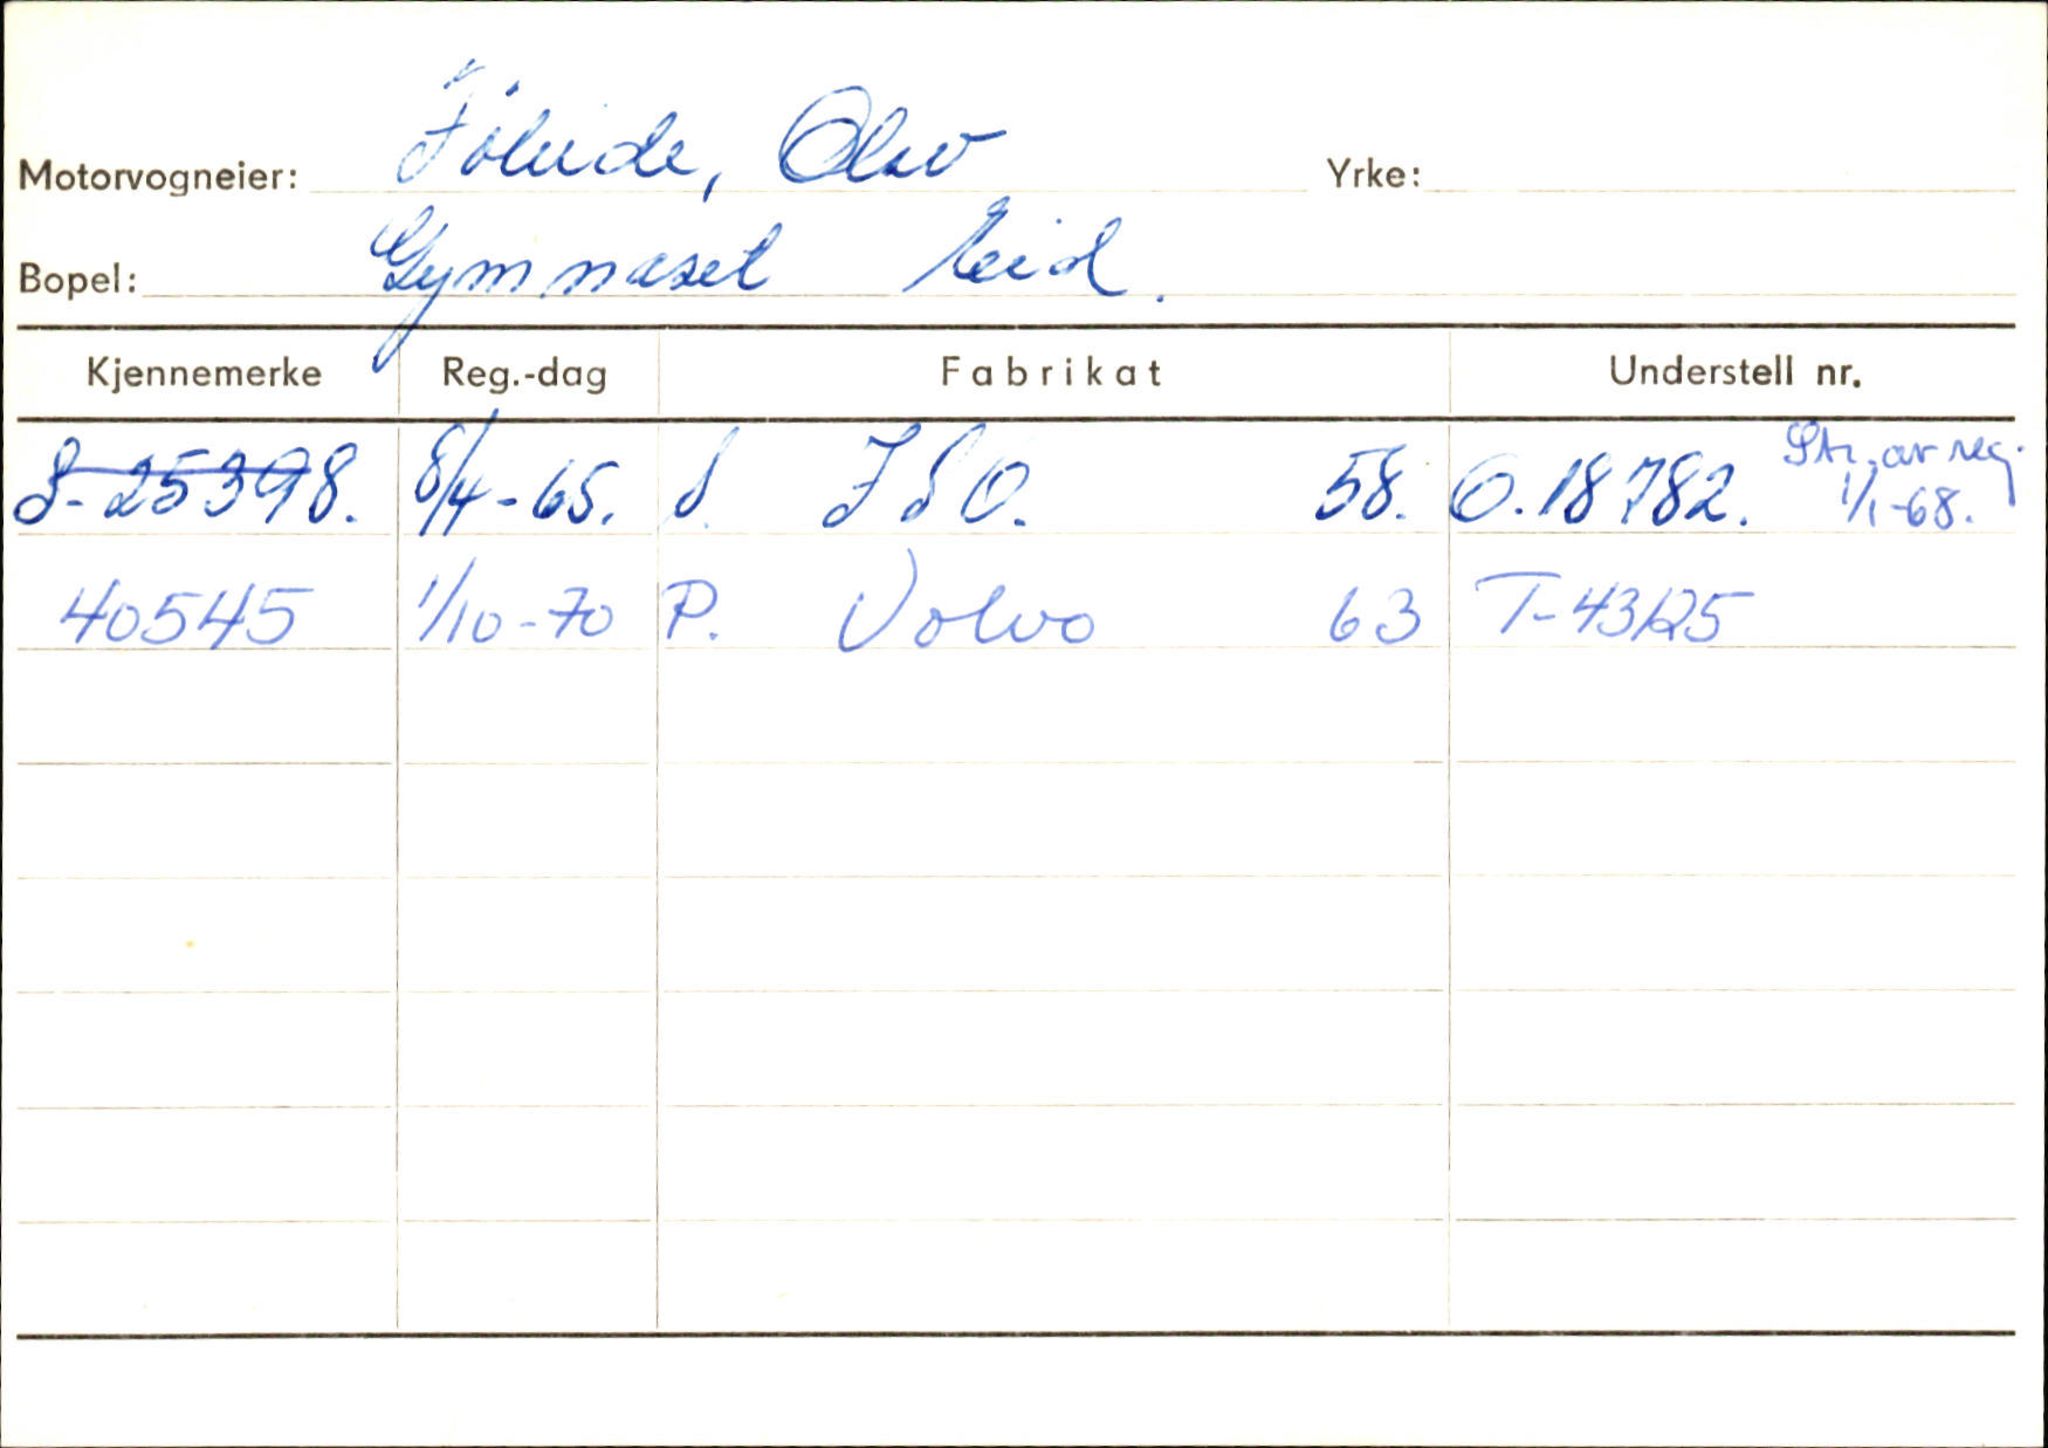 Motorvogneier: Föleide, Olav Yrke:
Bopel: Gymnaset Eid.
Kjennemerke Reg.-dag Fabrikat Understell nr.
S-25398. 8/4-65. S. ISO. 58. O.18782. Str. av reg. 1/1-68.
40545 1/10-70 P. Volvo 63 T-43125